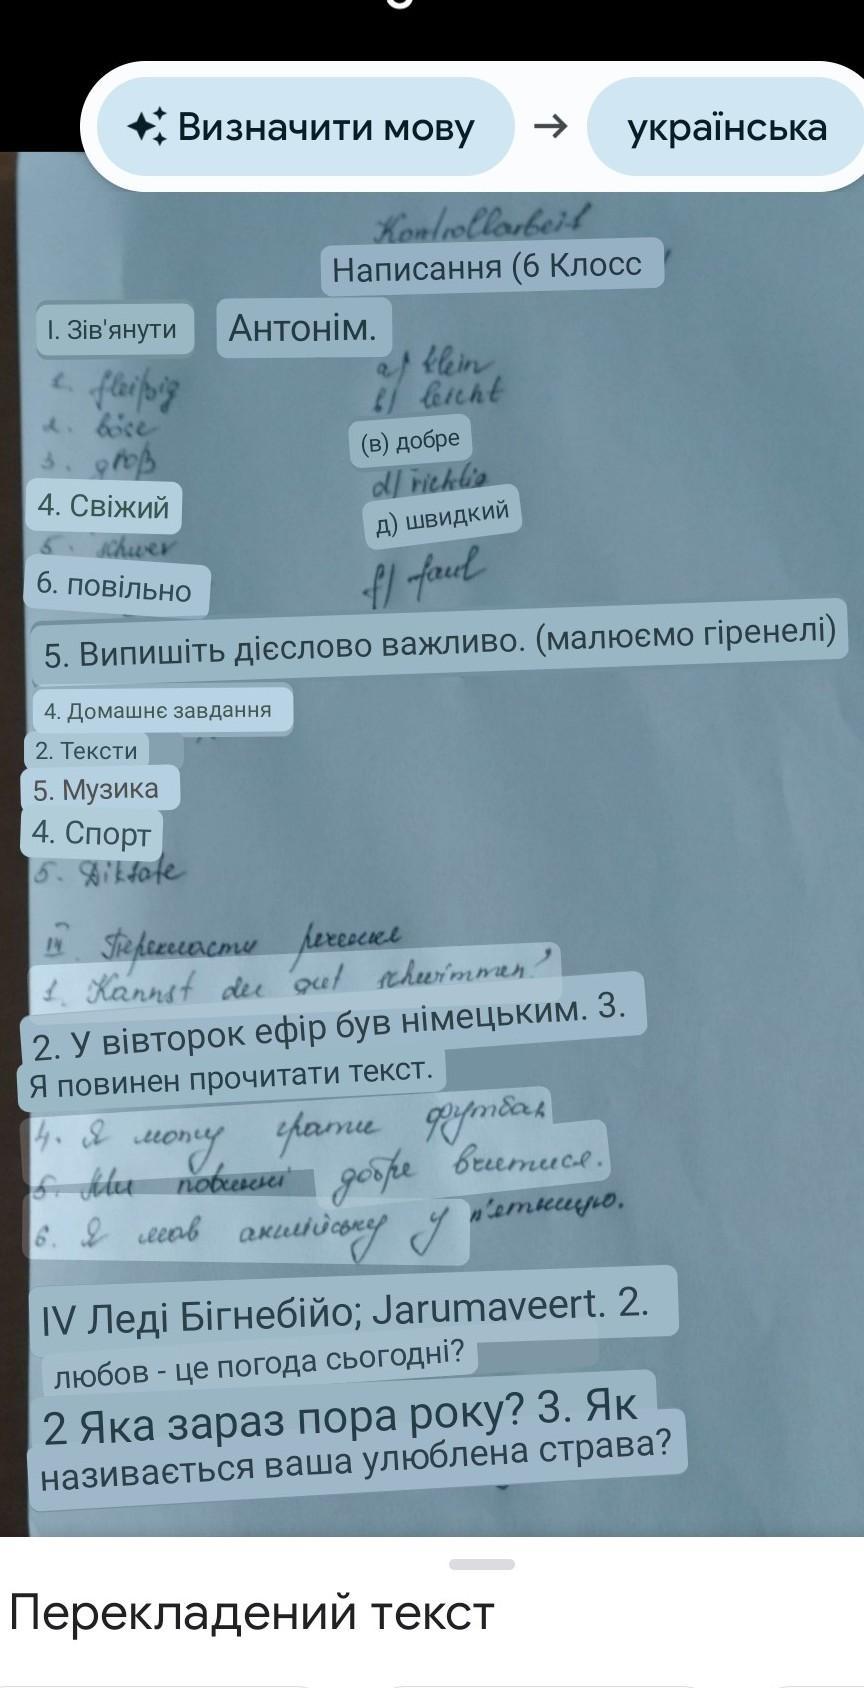 Визначити мову → українська
Kontrollarbeit
Написання (6 Клосс
І. Зів'янути Антонім.
1. fleißig a) klein
2. böse b) leicht
3. groß (в) добре
4. Свіжий d) richtig
5. schwer д) швидкий
6. повільно f) faul
5. Випишіть дієслово важливо. (малюємо гіренелі)
4. Домашнє завдання
2. Тексти
5. Музика
4. Спорт
5. Diktate
Перекласти речення
1. Kannst du gut schwimmen?
2. У вівторок ефір був німецьким. 3.
Я повинен прочитати текст.
4. Я можу грати футбол
5. Ми повинні добре вчитися.
6. Я мав англійську у п'ятницю.
IV Леді Бігнебійо; Jarumaveert. 2.
любов - це погода сьогодні?
2 Яка зараз пора року? 3. Як
називається ваша улюблена страва?
Перекладений текст